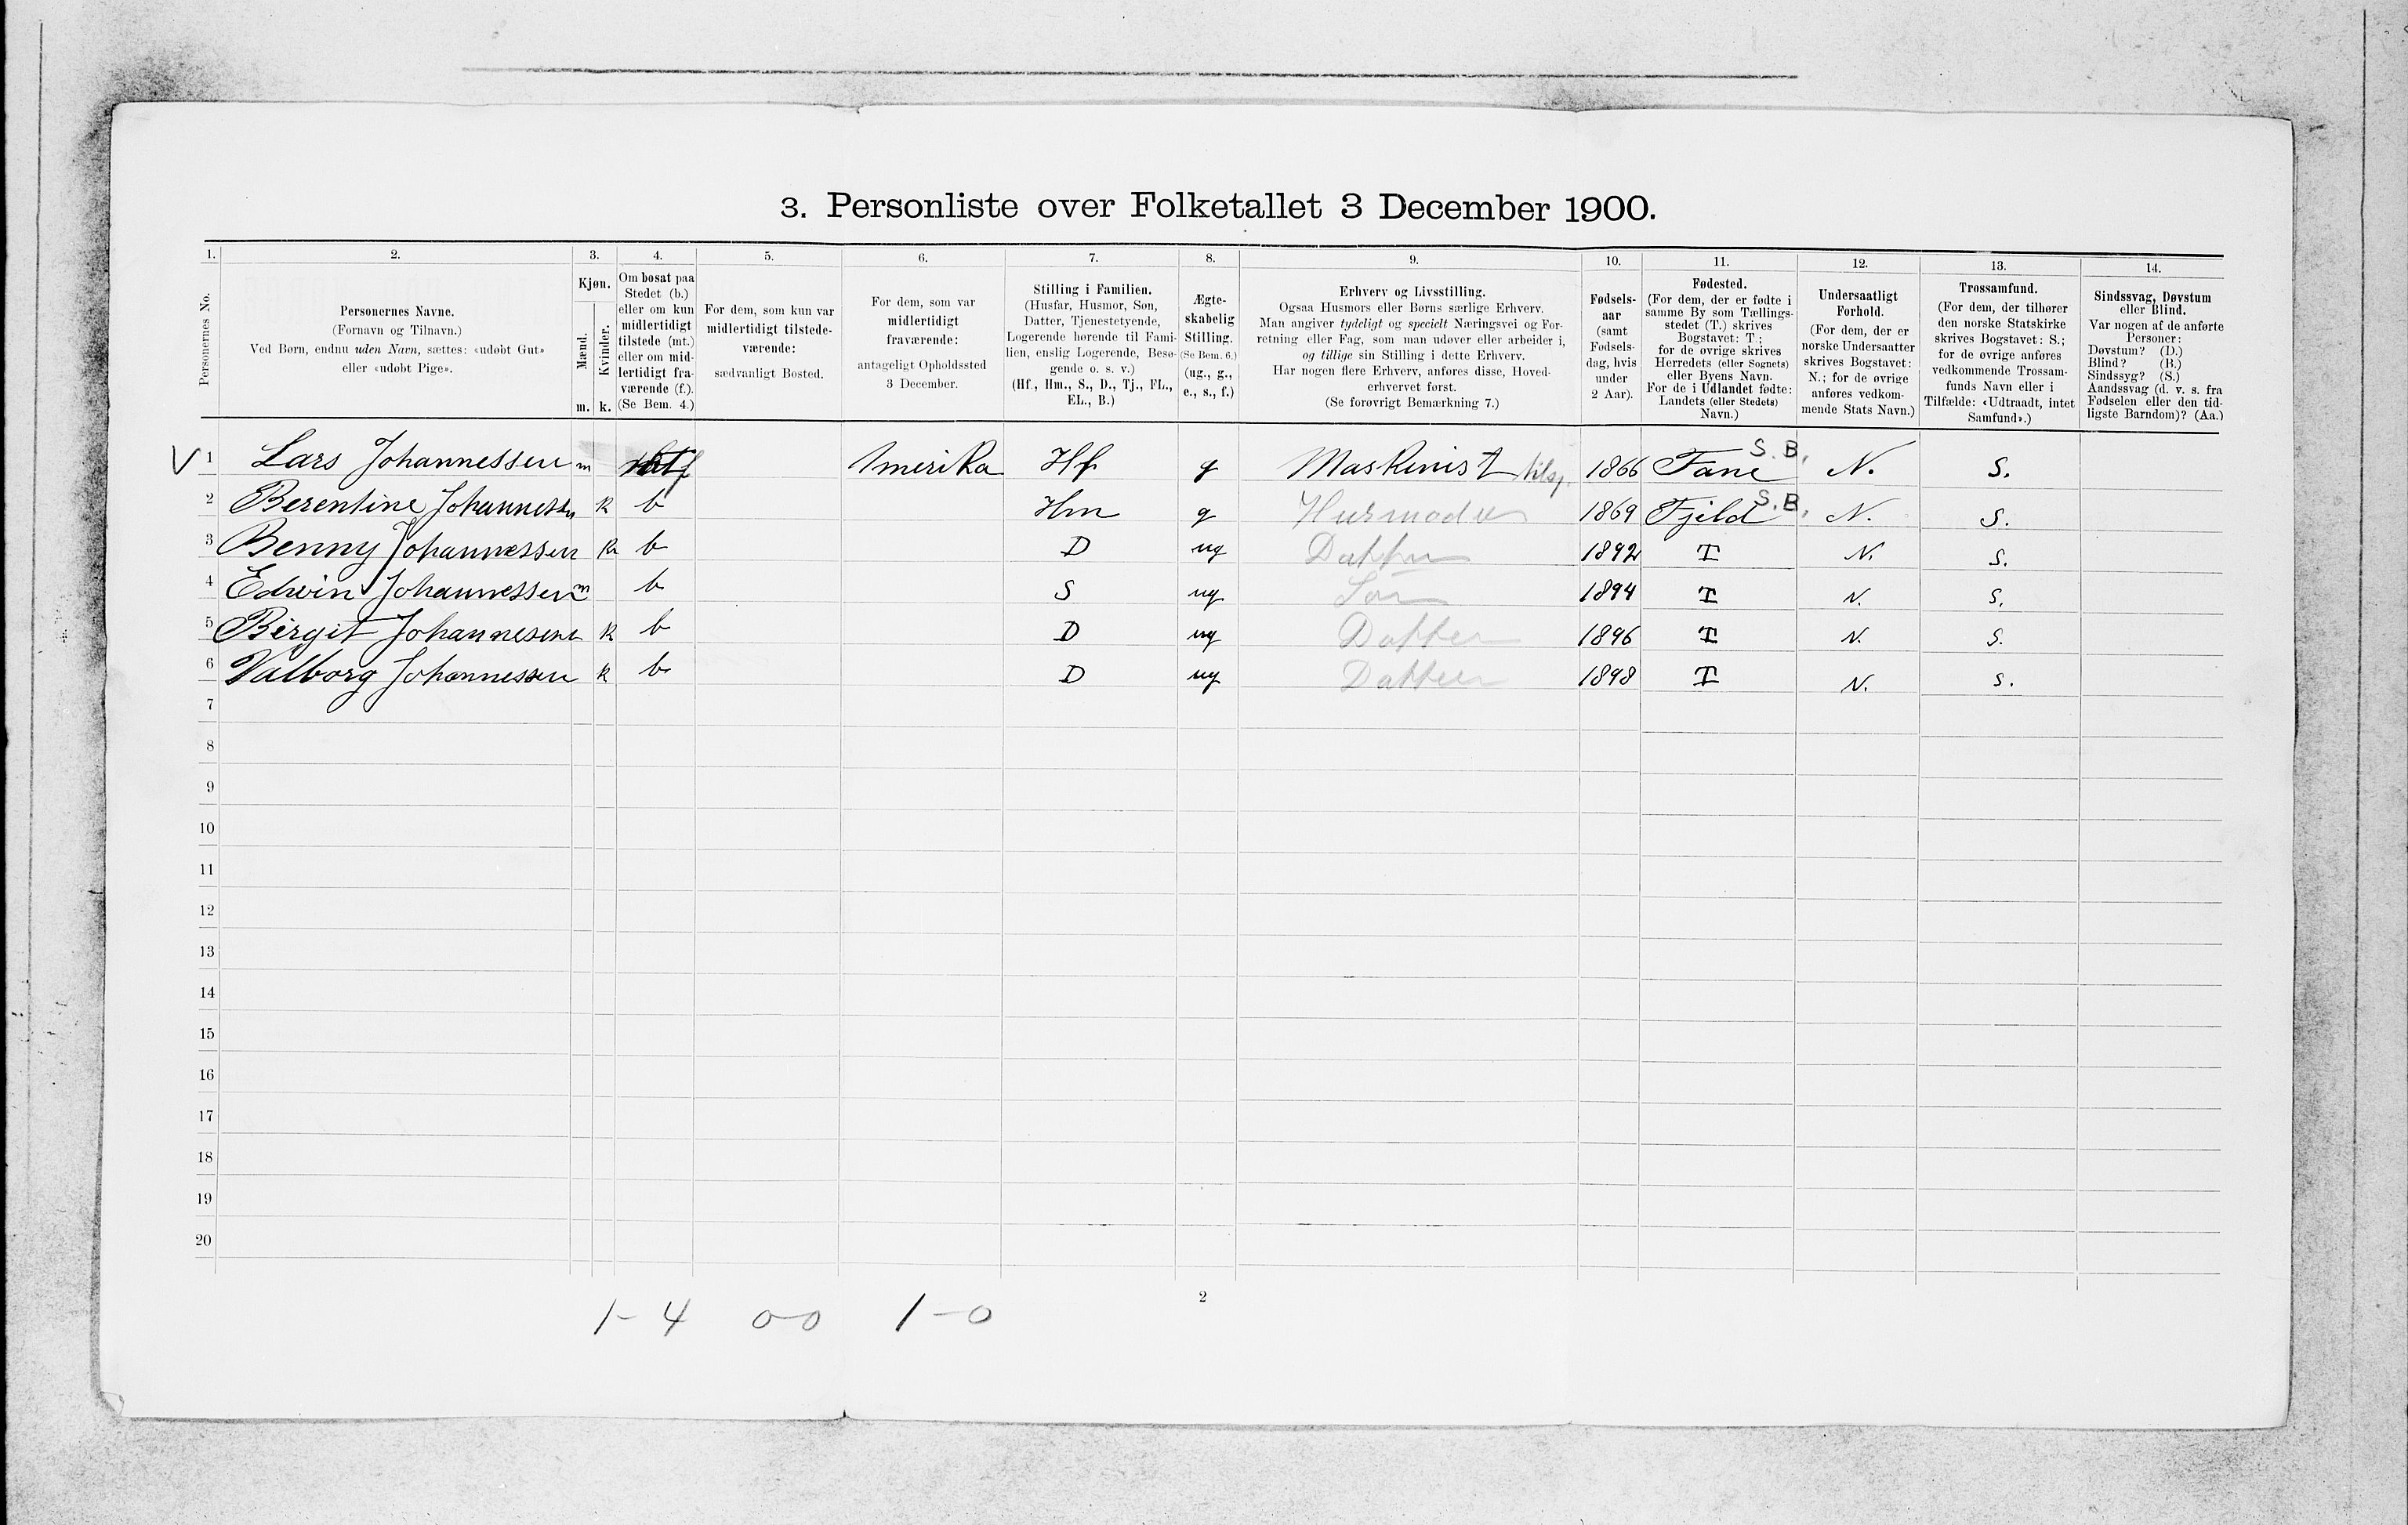 3. Personliste over Folketallet 3 December 1900.
1. 2. 3. 4. 5. 6. 7. 8. 9. 10. 11. 12. 13. 14.
Personernes No.
Personernes Navne.
(Fornavn og Tilnavn.)
Ved Børn, endnu uden Navn, sættes: «udøbt Gut»
eller «udøbt Pige».
Kjøn.
Mænd.
Kvinder.
m. k.
Om bosat paa
Stedet (b.)
eller om kun
midlertidigt
tilstede (mt.)
eller om mid-
lertidigt fra-
værende (f.).
(Se Bem. 4.)
For dem, som kun var
midlertidigt tilstede-
værende:
sædvanligt Bosted.
For dem, som var
midlertidigt
fraværende:
antageligt Opholdssted
3 December.
Stilling i Familien.
(Husfar, Husmor, Søn,
Datter, Tjenestetyende,
Logerende hørende til Fami-
lien, enslig Logerende, Besø-
gende o. s. v.)
(Hf., Hm., S., D., Tj., FL.,
EL., B.)
Ægte-
skabelig
Stilling.
(Se Bem. 6.)
(ug., g.,
e., s., f.)
Erhverv og Livsstilling.
Ogsaa Husmors eller Børns særlige Erhverv.
Man angiver tydeligt og specielt Næringsvei og For-
retning eller Fag, som man udøver eller arbeider i,
og tillige sin Stilling i dette Erhverv.
Har nogen flere Erhverv, anføres disse, Hoved-
erhvervet først.
(Se forøvrigt Bemærkning 7.)
Fødsels-
aar
(samt
Fødsels-
dag, hvis
under
2 Aar).
Fødested.
(For dem, der er fødte i
samme By som Tællings-
stedet (T.) skrives
Bogstavet: T;
for de øvrige skrives
Herredets (eller Sognets)
eller Byens Navn.
For de i Udlandet fødte:
Landets (eller Stedets)
Navn.)
Undersaatligt
Forhold.
(For dem, der er
norske Undersaatter
skrives Bogstavet:
N.; for de øvrige
anføres vedkom-
mende Stats Navn.)
Trossamfund.
(For dem, der tilhører
den norske Statskirke
skrives Bogstavet: S.;
for de øvrige anføres
vedkommende Trossam-
funds Navn eller i
Tilfælde: «Udtraadt, intet
Samfund».)
Sindssvag, Døvstum
eller Blind.
Var nogen af de anførte
Personer:
Døvstum? (D.)
Blind? (B.)
Sindssyg? (S.)
Aandssvag (d. v. s. fra
Fødselen eller den tid-
ligste Barndom)? (Aa.)
V 1 Lars Johannessen m f Amerika Hf g Maskinist 1866 Fane S.B. N. S.
2 Berentine Johannessen k b Hm g Husmoder 1869 Fjeld S.B. N. S.
3 Benny Johannessen k b D ug Datter 1892 T N. S.
4 Edwin Johannessen m b S ug Søn 1894 T N. S.
5 Birgit Johannesen k b D ug Datter 1896 T N. S.
6 Valborg Johannessen k b D ug Datter 1898 T N. S.
7
8
9
10
11
12
13
14
15
16
17
18
19
20
2
1-4 0-0 1-0